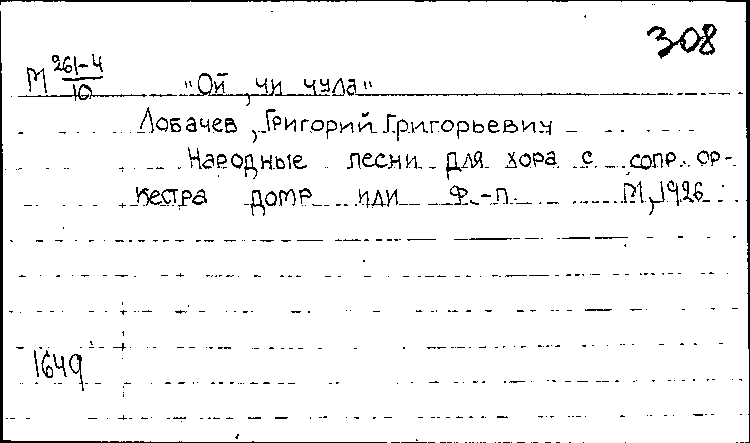 308
М 261-4/10 "Ой, чи чула"
Лобачев, Григорий Григорьевич
Народные песни для хора с сопр. ор-
кестра домр или Ф.-п. М, 1926
1649